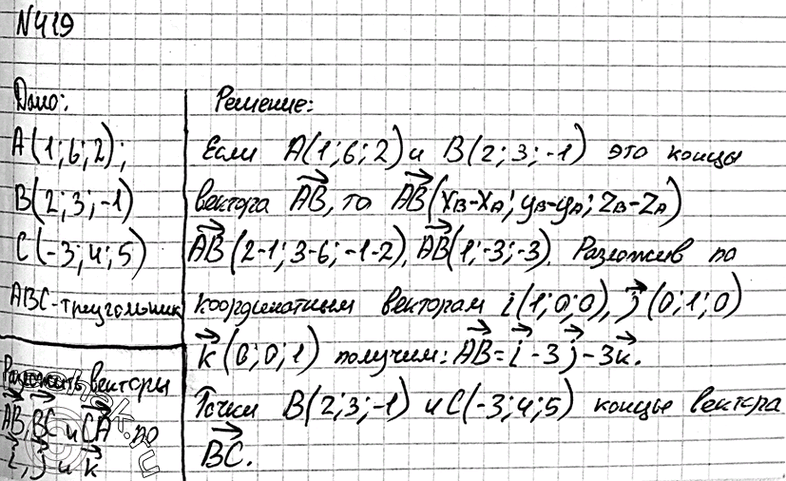 N419
Дано:
A(1;6;2);
B(2;3;-1)
C(-3;4;5)
ABC-треугольник
Разложить векторы
AB, BC и CA по
i, j и k
Решение:
Если A(1;6;2) и B(2;3;-1) это концы
вектора AB, то AB(xB-xA; yB-yA; zB-zA)
AB(2-1; 3-6; -1-2), AB(1;-3;-3). Разложив по
координатным векторам i(1;0;0), j(0;1;0)
k(0;0;1) получим: AB=i-3j-3k.
Точки B(2;3;-1) и C(-3;4;5) концы вектора
BC.